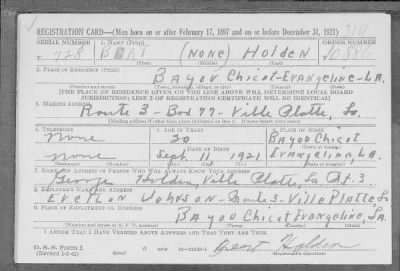 REGISTRATION CARD—(Men born on or after February 17, 1897 and on or before December 31, 1921)
SERIAL NUMBER 1. NAME (Print) ORDER NUMBER
T 728 BERT (NONE) Holden 10886
2. PLACE OF RESIDENCE (Print)
BAYOU Chicot-EVANGELINE-LA.
[THE PLACE OF RESIDENCE GIVEN ON THE LINE ABOVE WILL DETERMINE LOCAL BOARD
JURISDICTION; LINE 2 OF REGISTRATION CERTIFICATE WILL BE IDENTICAL]
3. MAILING ADDRESS
Route 3-Box 77-Ville Platte, La.
[Mailing address if other than place indicated on line 2. If same insert word same]
4. TELEPHONE 5. AGE IN YEARS 6. PLACE OF BIRTH
None 20 BAYOU Chicot
DATE OF BIRTH
None Sept. 11 1921 EVANGELINE LA.
7. NAME AND ADDRESS OF PERSON WHO WILL ALWAYS KNOW YOUR ADDRESS
George Holden, Ville Platte, La Rt. 3
8. EMPLOYER'S NAME AND ADDRESS
Johnson-Route 3-Ville Platte, La
9. PLACE OF EMPLOYMENT OR BUSINESS
BAYOU Chicot EVANGELINE, LA.
I AFFIRM THAT I HAVE VERIFIED ABOVE ANSWERS AND THAT THEY ARE TRUE.
D. S. S. Form 1
(Revised 1-1-42) (over) Holden
(Registrant's signature)